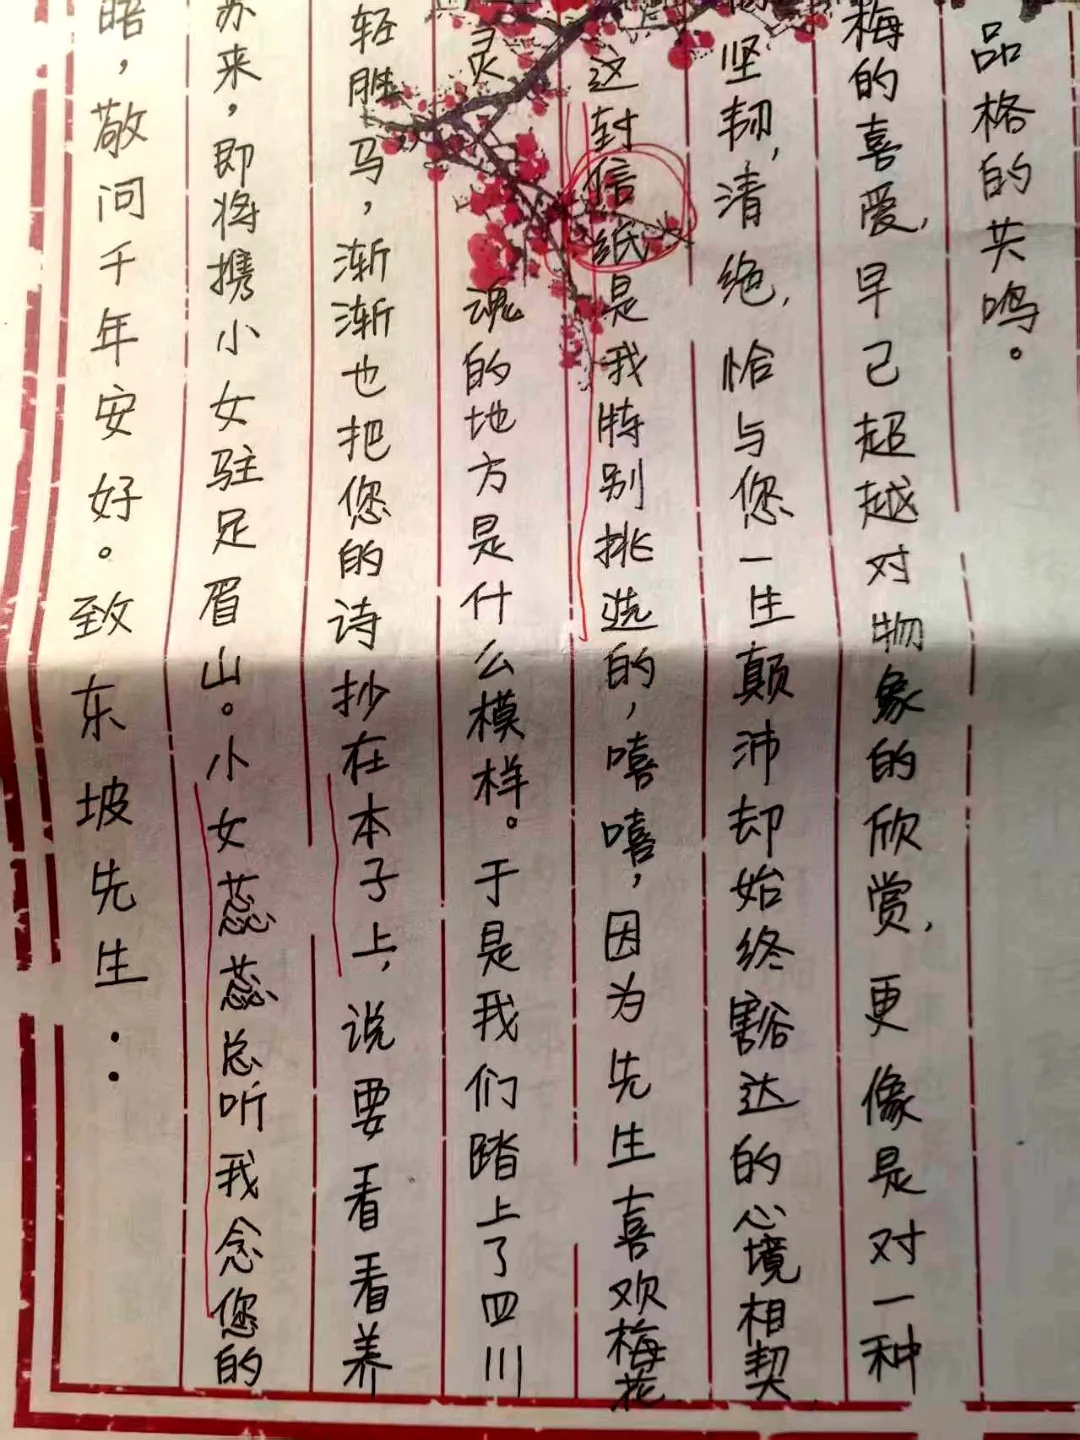 晤，敬问千年安好。致东坡先生：
苏来，即将携小女驻足眉山。小女蕊蕊总听我念您的
轻胜马，渐渐也把您的诗抄在本子上，说要看看养
灵魂的地方是什么模样。于是我们踏上了四川
这封信纸是我特别挑选的，嘻嘻，因为先生喜欢梅花
坚韧，清绝，恰与您一生颠沛却始终豁达的心境相契
梅的喜爱，早已超越对物象的欣赏，更像是对一种
品格的共鸣。